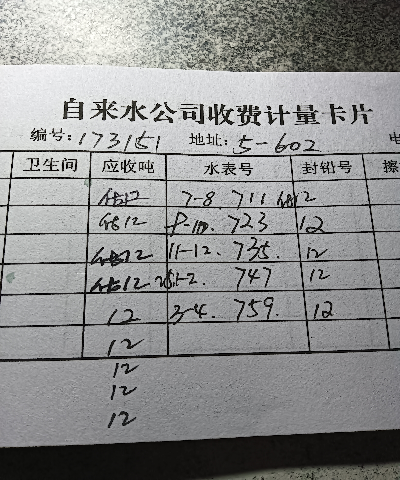 自来水公司收费计量卡片
编号:173151 地址:5-602 电
卫生间 应收吨 水表号 封铅号 擦
7-8 711 12
12 9-10. 723 12
12 11-12. 735. 12
12 1-2. 747 12
12 3-4. 759. 12
12
12
12
12